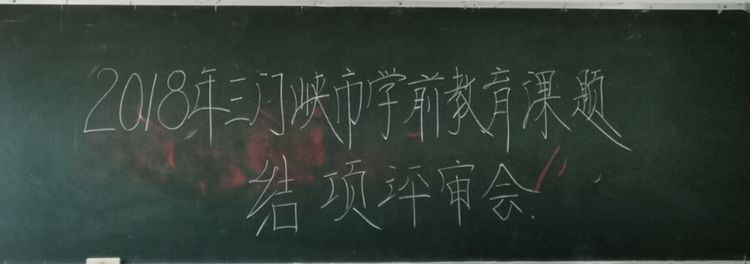 2018年三门峡市学前教育课题
结项评审会.